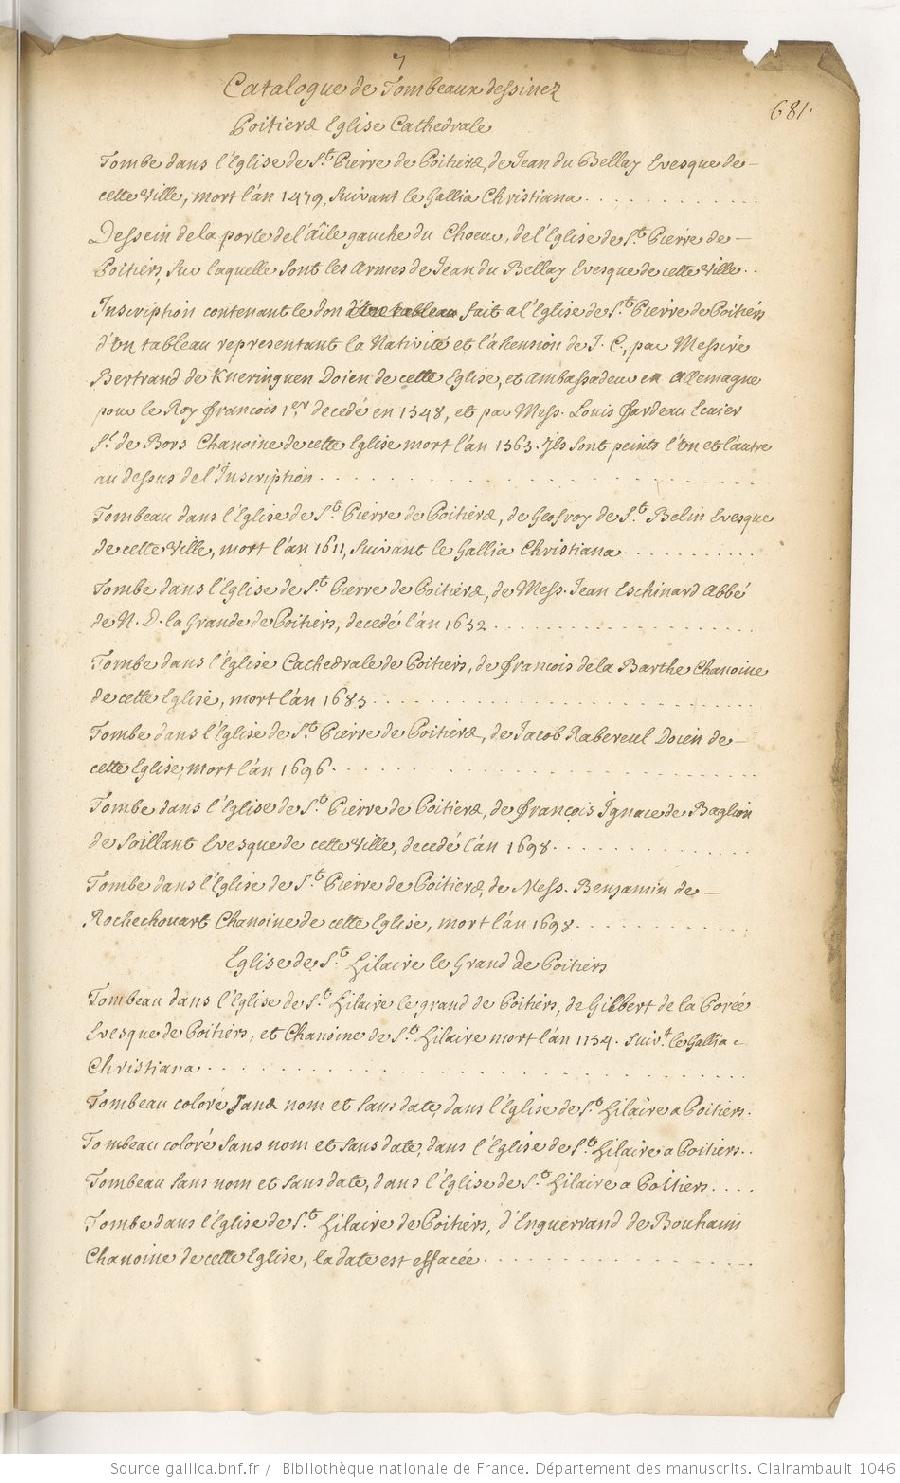 7
Catalogue de Tombeaux dessinez
681.
Poitiers Eglise Cathedrale
Tombe dans l'Eglise de St. Pierre de Poitiers, de Jean du Bellay Evesque de
cette Ville, mort l'an 1479, suivant le Gallia Christiana
Dessein de la porte de l'aîle gauche du Choeur, de l'Eglise de St. Pierre de
Poitiers, sur laquelle sont les armes de Jean du Bellay Evesque de cette Ville
Inscription contenant le don d'un tableau fait a l'Eglise de St. Pierre de Poitiers
d'un tableau representant la Nativité et l'Ascension de J. C., par Messire
Bertrand de Kneringuen Doien de cette Eglise, et ambassadeur en Alemagne
pour le Roy François 1er decedé en 1548, et par Mess. Louis Jardeau Ecuier
Sr. de Bors Chanoine de cette Eglise mort l'an 1563. Ils sont peints l'un et l'autre
au dessus de l'Inscription
Tombeau dans l'Eglise de St. Pierre de Poitiers, de Geofroy de St. Belin Evesque
de cette Ville, mort l'an 1611, suivant le Gallia Christiana
Tombe dans l'Eglise de St. Pierre de Poitiers, de Mess. Jean Eschinard Abbé
de N. D. la Grande de Poitiers, decedé l'an 1632
Tombe dans l'Eglise Cathedrale de Poitiers, de François de la Barthe Chanoine
de cette Eglise, mort l'an 1683
Tombe dans l'Eglise de St. Pierre de Poitiers, de Jacob Rabereul Doien de
cette Eglise, mort l'an 1696
Tombe dans l'Eglise de St. Pierre de Poitiers, de François Ignace de Baglion
de Saillant Evesque de cette Ville, decedé l'an 1698
Tombe dans l'Eglise de St. Pierre de Poitiers, de Mess. Benjamin de
Rochechouart Chanoine de cette Eglise, mort l'an 1698
Eglise de St. Hilaire le Grand de Poitiers
Tombeau dans l'Eglise de St. Hilaire le grand de Poitiers, de Gilbert de la Porée
Evesque de Poitiers, et Chanoine de St. Hilaire mort l'an 1154. suivt. le Gallia
Christiana
Tombeau coloré sans nom et sans date, dans l'Eglise de St. Hilaire a Poitiers.
Tombeau coloré sans nom et sans date, dans l'Eglise de St. Hilaire a Poitiers
Tombeau sans nom et sans date, dans l'Eglise de St. Hilaire a Poitiers
Tombe dans l'Eglise de St. Hilaire de Poitiers, d'Enguerrand de Bouhain
Chanoine de cette Eglise, la date est effacée
Source gallica.bnf.fr / Bibliothèque nationale de France. Département des manuscrits. Clairambault 1046